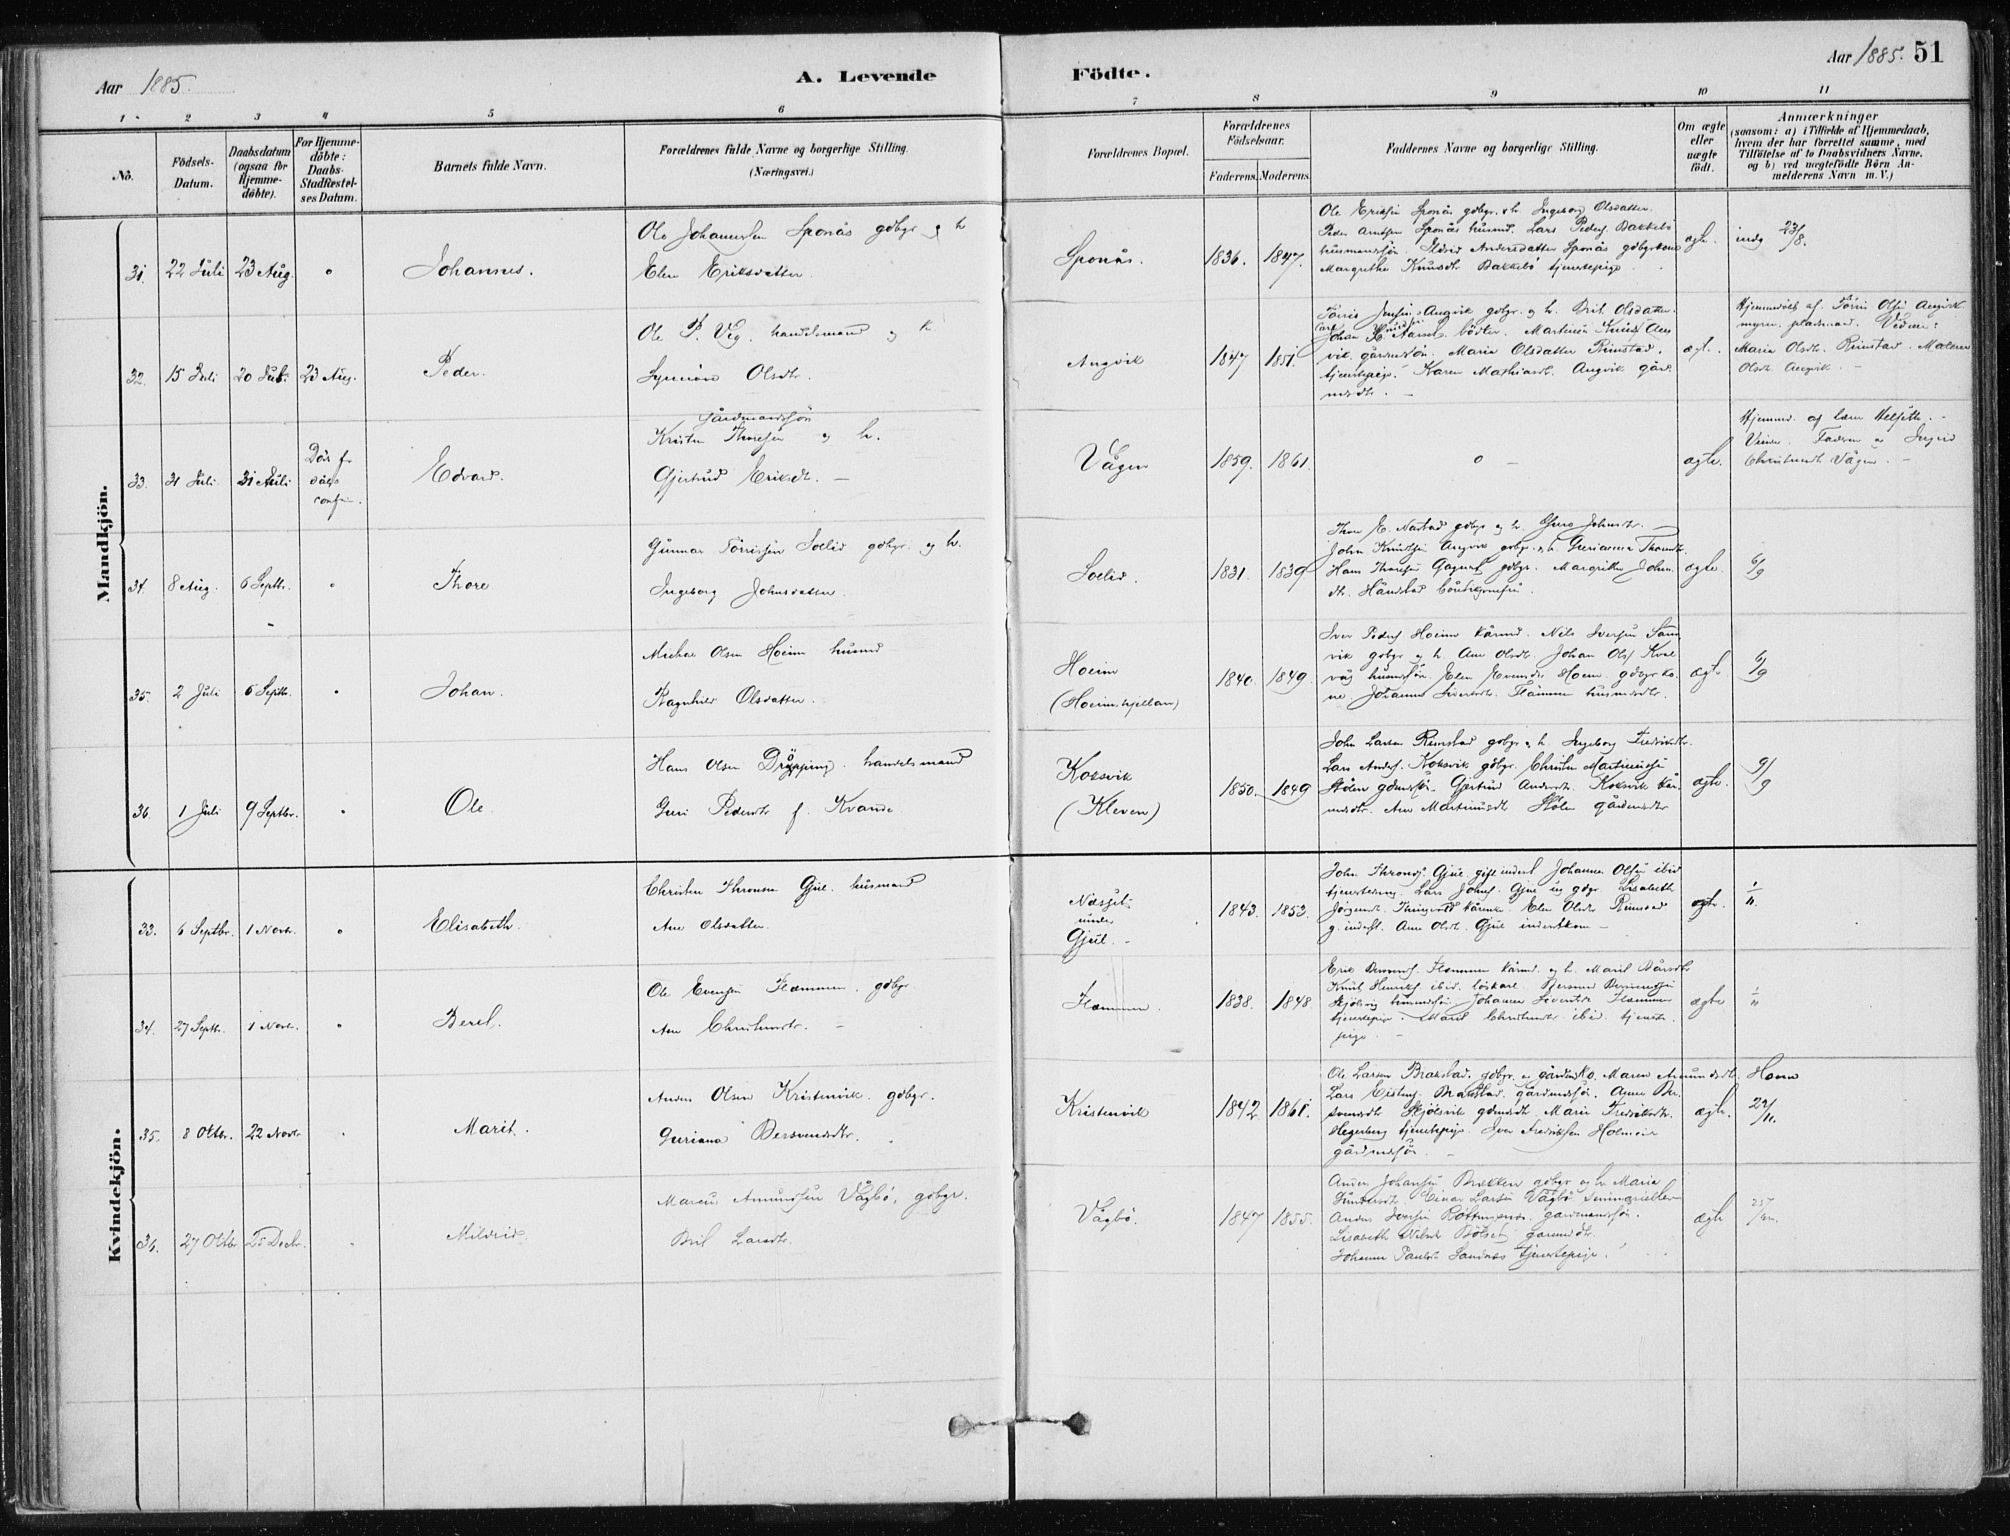 Aar 1885.
A. Levende Födte.
Aar 1885. 51
1 2 3 4 5 6 7 8 9 10 11
No.
Födsels-
Datum.
Daabsdatum
(ogsaa for
Hjemme-
döbte).
For Hjemme-
döbte:
Daabs-
Stadfæstel-
ses Datum.
Barnets fulde Navn.
Forældrenes fulde Navne og borgerlige Stilling.
(Næringsvei.)
Forældrenes Bopæl.
Forældrenes
Födselsaar.
Faderens. Moderens.
Faddernes Navne og borgerlige Stilling.
Om ægte
eller
uægte
födt.
Anmærkninger
(saasom: a) i Tilfælde af Hjemmedaab,
hvem der har forrettet samme, med
Tilföielse af to Daabsvidners Navne.
og b) ved uægtefödte Börn An-
melderens Navn m. V.)
Mandkjön.
31. 22 Juli 23 Aug. Johannes.
Ole Johannesen Sponås gdbgr og h
Elen Eriksdatter
Sponås. 1836. 1847.
Ole Eriksen Sponås gdbgr. & h. Ingeborg Olsdatter.
Peder Arntsen Sponås husmd. Lars Peders Bakkebö
husmandssön. Andersdatter Sponås gdbgrkone
Margrethe Knudsdtr Bakkebö tjenestepige
ægte. 23/8.
32. 15 Juli 20 Juli 23 Aug. Peder.
Ole P. Veg. handelsmand og h
Olsdtr.
Angvik 1847 1851.
Törris Jensen Angvik gdbgr. og h. Brit Olsdatter.
vik gårdmdsön. Maria Olsdatter Rimstad.
tjenestepige. Karen Mathiasdtr. Angvik gård
mdsdtr.
ægt.
Hjemmedöbt af Törris Olsen Angvik
myren pladsmand. Vidner:
Maria Olsdtr. Rimstad. Malene
Olsdtr Angvik.
33. 31 Juli 31 Juli Edvard.
Gårdmandssön
Kristen Thoresen og h.
Gjertrud Eriksdtr.
Vågen 1859. 1861.
ægte.
Hjemmed. af
Faderen og Ingrid
Vågen.
34. 8 Aug. 6 Septbr. Thore
Gunnar Törrissen Solid gdbgr. og h.
Ingeborg Johnsdatter.
Solid. 1831. 1839
Thore E. Nastad gdbgr og h. Guro Johnsdtr.
John Knutsen Angvik gdbgr. & h. Gurianna Thoresdtr.
Hans Thoresen gdbgr. Margrethe Johns
dtr. Håndstad
ægte. 6/9
35. 2 Juli 6 Septbr. Johan.
Michae Olsen Hoem husmd
Ragnhild Olsdatter.
Hoem
(Hoemskjellan)
1840. 1849.
Iver Peders Hoem kårmd. Nils Iversen
vik gdbgr og h. Ane Olsdtr. Johan Ols Kval
våg husmdssön. Elen Evensdtr Hoem. gdbgrko
ne Johanne Sivertsdtr. Flemmen husmdsdtr.
ægte 6/9
36. 1 Juli 9 Septbr. Ole.
Hans Olsen Dröpping. handelsmand
Guri Pedersdtr f. Kvande
Koksvik
(Kleven)
1850. 1849
John Larsen Rimstad gdbgr & h. Ingeborg Fredriksdtr.
Lars Anders. Koksvik gdbgr. Christen Martinussen
Stölen Gjertrud Andersdtr. Koksvik kår
mdsdtr. Ane Martinusdtr Stölen gårdmdsdtr
ægte. 9/9
Kvindekjön.
33. 6 Septbr. 1 Novbr. Elisabeth.
Christen Thronsen Gjul. husmand
Ane Olsdatter.
under
Gjul.
1843. 1853.
John Throns. Gjul gift inderst Johannes Olsen ibid
tjenestedreng. Lars Johns. Gjul ug gdgr. Lisabeth
Elen Olsdtr Rimstad
g. inderst. Ane Olsdtr. Gjul inderstkone
ægte. 1/11
34. 27 Septbr. 1 Novbr. Berel.
Ole Evensen Flemmen. gdbgr.
Ane Christensdtr.
Flemmen. 1838. 1848.
Flemmen kårmd. og h. Marit
Knut Henriks ibid. löskarl.
Johanna Sivertsdtr Flemmen
tjenestepige. Marit Christensdtr ibid. tjeneste
pige.
ægte 1/11
35. 8 Oktbr. 22 Novbr Marit.
Anders Olsen Kristenvik. gdbgr.
Guriana Bersvendsdtr.
Kristenvik 1842 1861.
Ole Larsen Brakstad. gdbgr. Maren Amundsdtr.
Lars Brakstad gårdmdssön. Anne Ber
svendsdtr Skjölsvik gdmdsdtr. Marie Fredriksdtr.
Hegerberg tjenestepige. Iver Fredriksen Holmeide
gårdmdssön.
ægte.
Hoem
22/11.
36. 27 Oktbr 25 Decbr. Mildrid
Marcus Amundsen Vågbö, gdbgr.
Brit Larsdtr.
Vågbö. 1847 1855.
Anders Johansen Brekken gdbgr og h. Maria
Einar Larsen Vågbö Seminarielev
Anders Iversen gårdmandssön.
Lisabeth Nilsdtr Bölset gårdmdsdtr.
Johanna Paulsdtr Sandnes tjenestepige.
ægte 25/12.